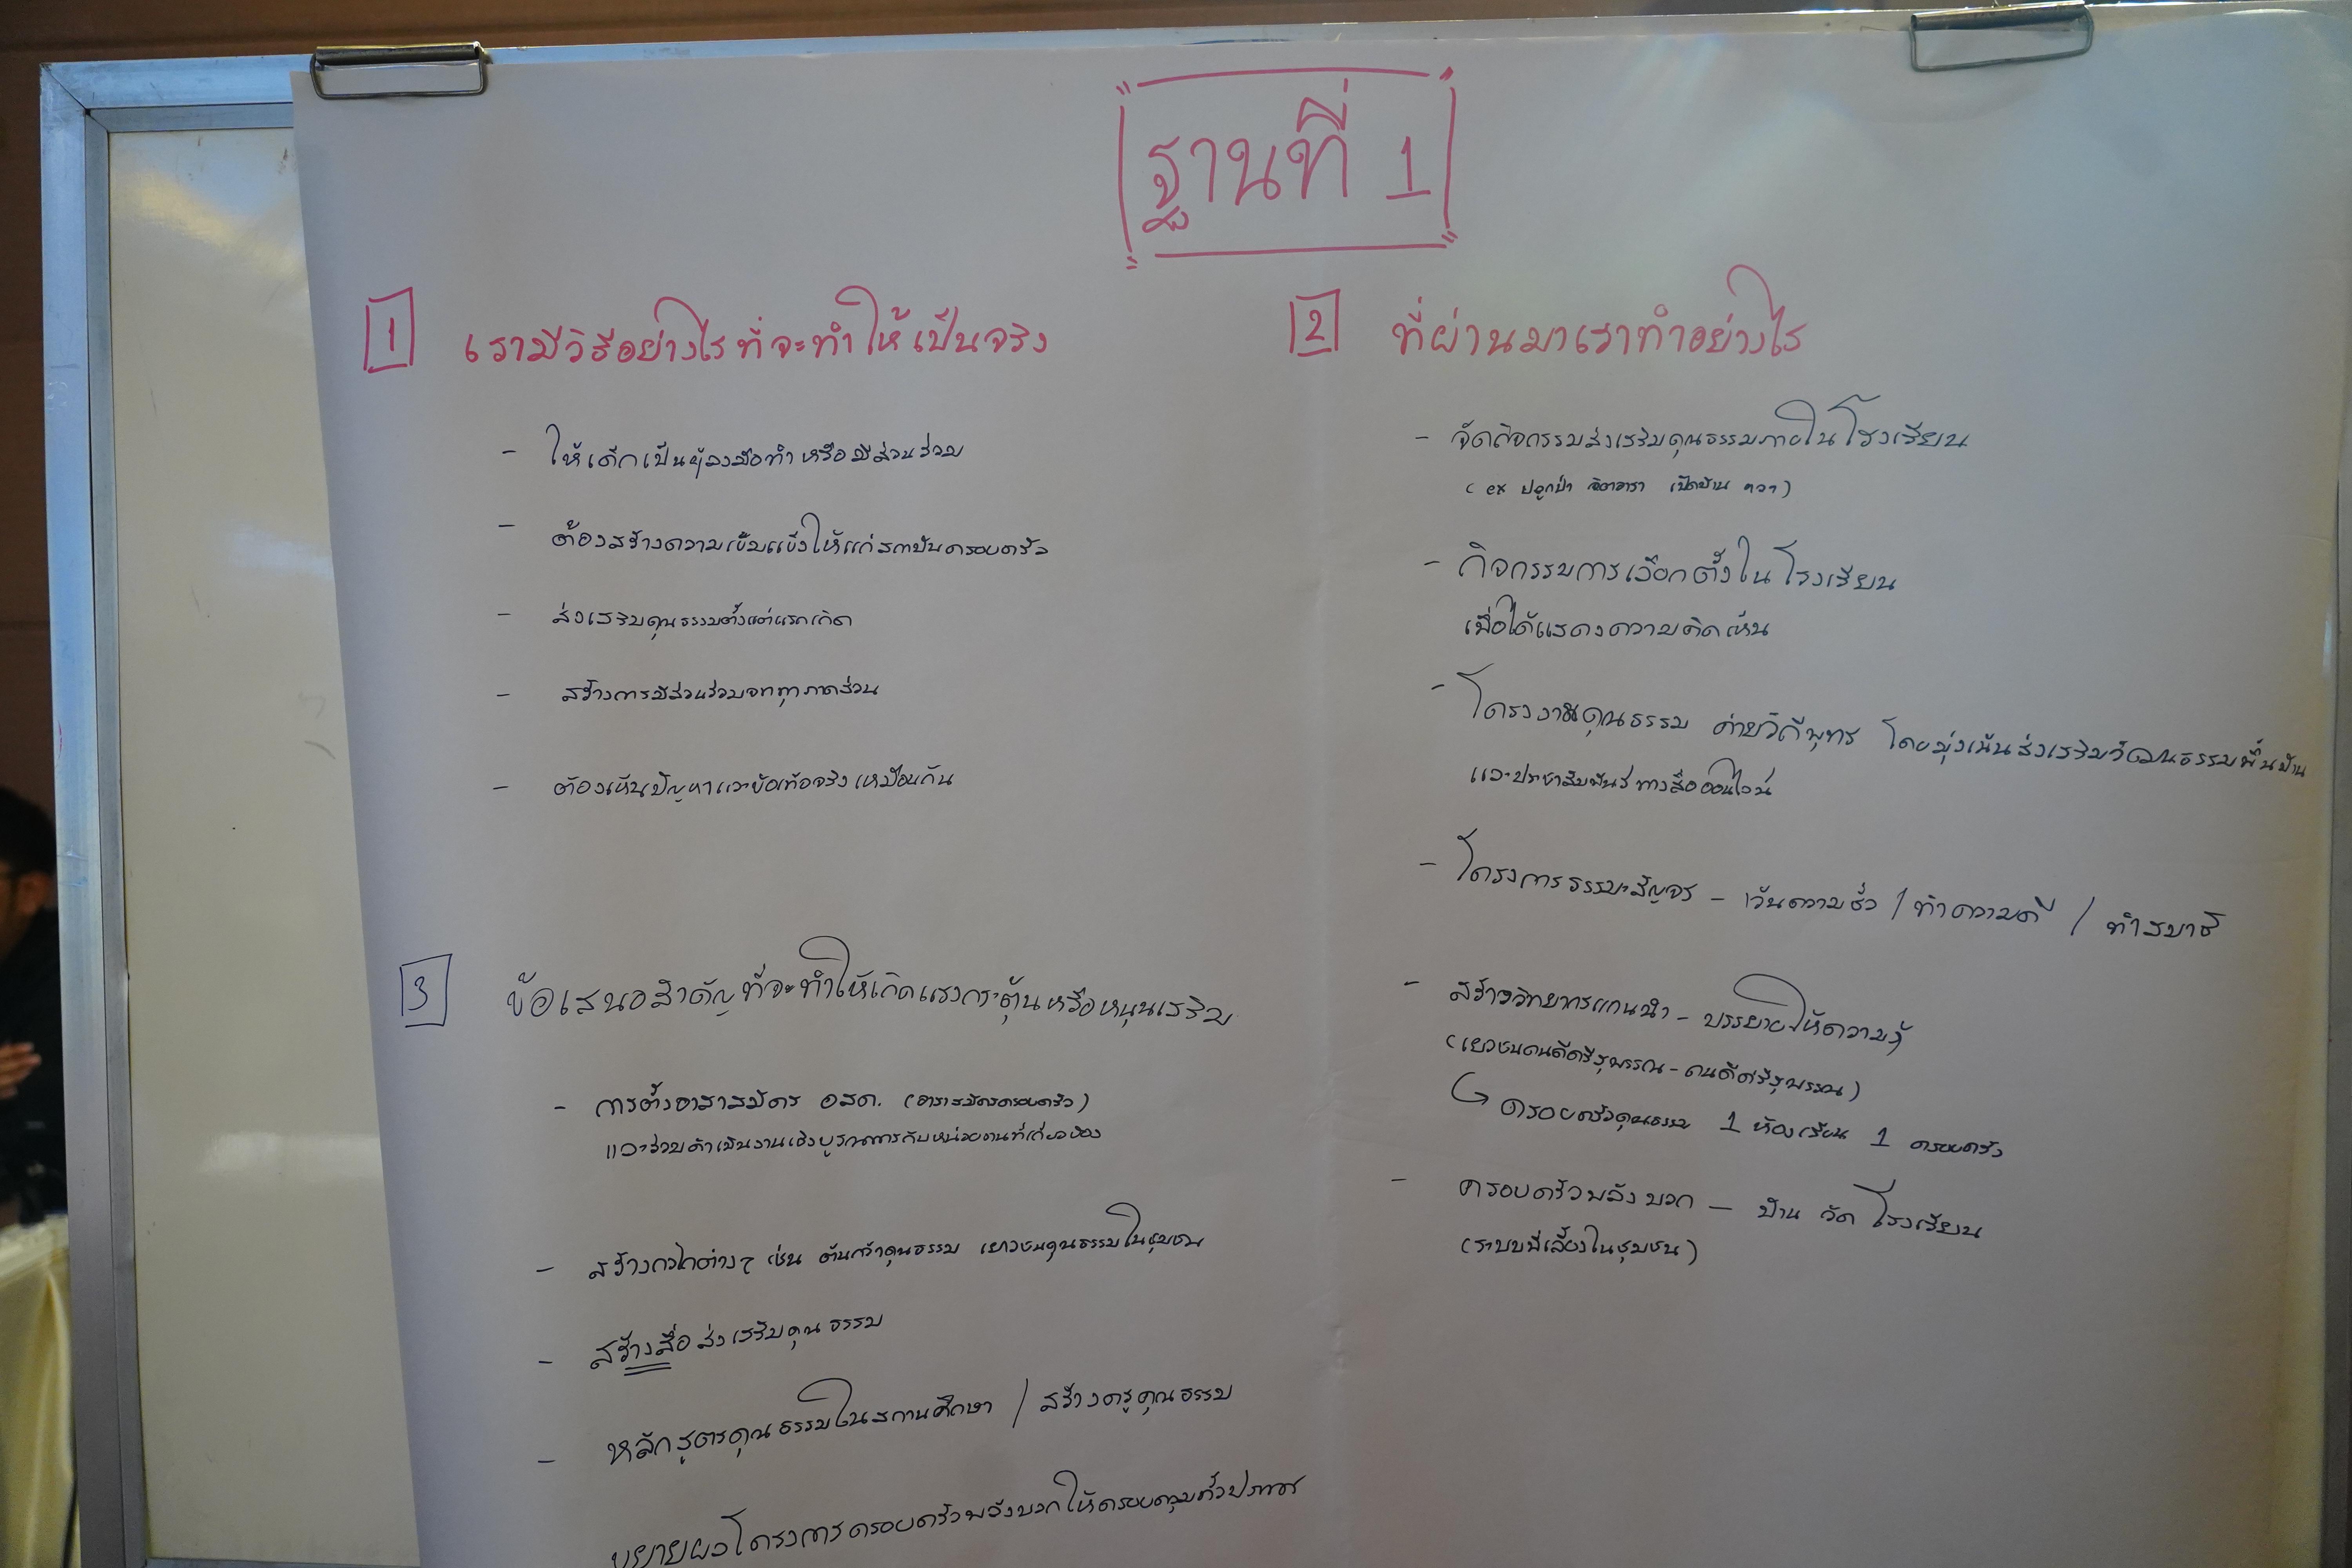 ฐานที่ 1
1 เรามีวิธีอย่างไรที่จะทำให้เป็นจริง
- ให้เด็กเป็นผู้ลงมือทำ หรือมีส่วนร่วม
- ต้องสร้างความเข้มแข็งให้แก่สถาบันครอบครัว
- ส่งเสริมคุณธรรมตั้งแต่แรกเกิด
- สร้างการมีส่วนร่วมจากทุกภาคส่วน
- ต้องเห็นปัญหาและข้อเท็จจริงเหมือนกัน
2 ที่ผ่านมาเราทำอย่างไร
- จัดกิจกรรมส่งเสริมคุณธรรมภายในโรงเรียน
(ex ปลูกป่า จิตอาสา เปิดบ้าน ฯลฯ)
- กิจกรรมการเลือกตั้งในโรงเรียน
เพื่อได้แสดงความคิดเห็น
- โครงงานคุณธรรม ค่ายวิถีพุทธ โดยมุ่งเน้นส่งเสริมวัฒนธรรมพื้นบ้าน
และประชาสัมพันธ์ทางสื่อออนไลน์
- โครงการธรรมะสัญจร - เว้นความชั่ว / ทำความดี / ทำสมาธิ
- สร้างวิทยากรแกนนำ - บรรยายให้ความรู้
(เยาวชนคนดีศรีสุพรรณ - คนดีศรีสุพรรณ)
↳ ครอบครัวคุณธรรม 1 ห้องเรียน 1 ครอบครัว
- ครอบครัวพลังบวก - บ้าน วัด โรงเรียน
(ระบบพี่เลี้ยงในชุมชน)
3 ข้อเสนอสำคัญที่จะทำให้เกิดแรงกระตุ้นหรือหนุนเสริม
- การตั้งอาสาสมัคร อสค. (อาสาสมัครครอบครัว)
และร่วมดำเนินงานเชิงบูรณาการกับหน่วยงานที่เกี่ยวข้อง
- สร้างกลไกต่างๆ เช่น ต้นกล้าคุณธรรม เยาวชนคุณธรรมในชุมชน
- สร้างสื่อส่งเสริมคุณธรรม
- หลักสูตรคุณธรรมในสถานศึกษา / สร้างครูคุณธรรม
ขยายผลโครงการครอบครัวพลังบวกให้ครอบคลุมทั่วประเทศ